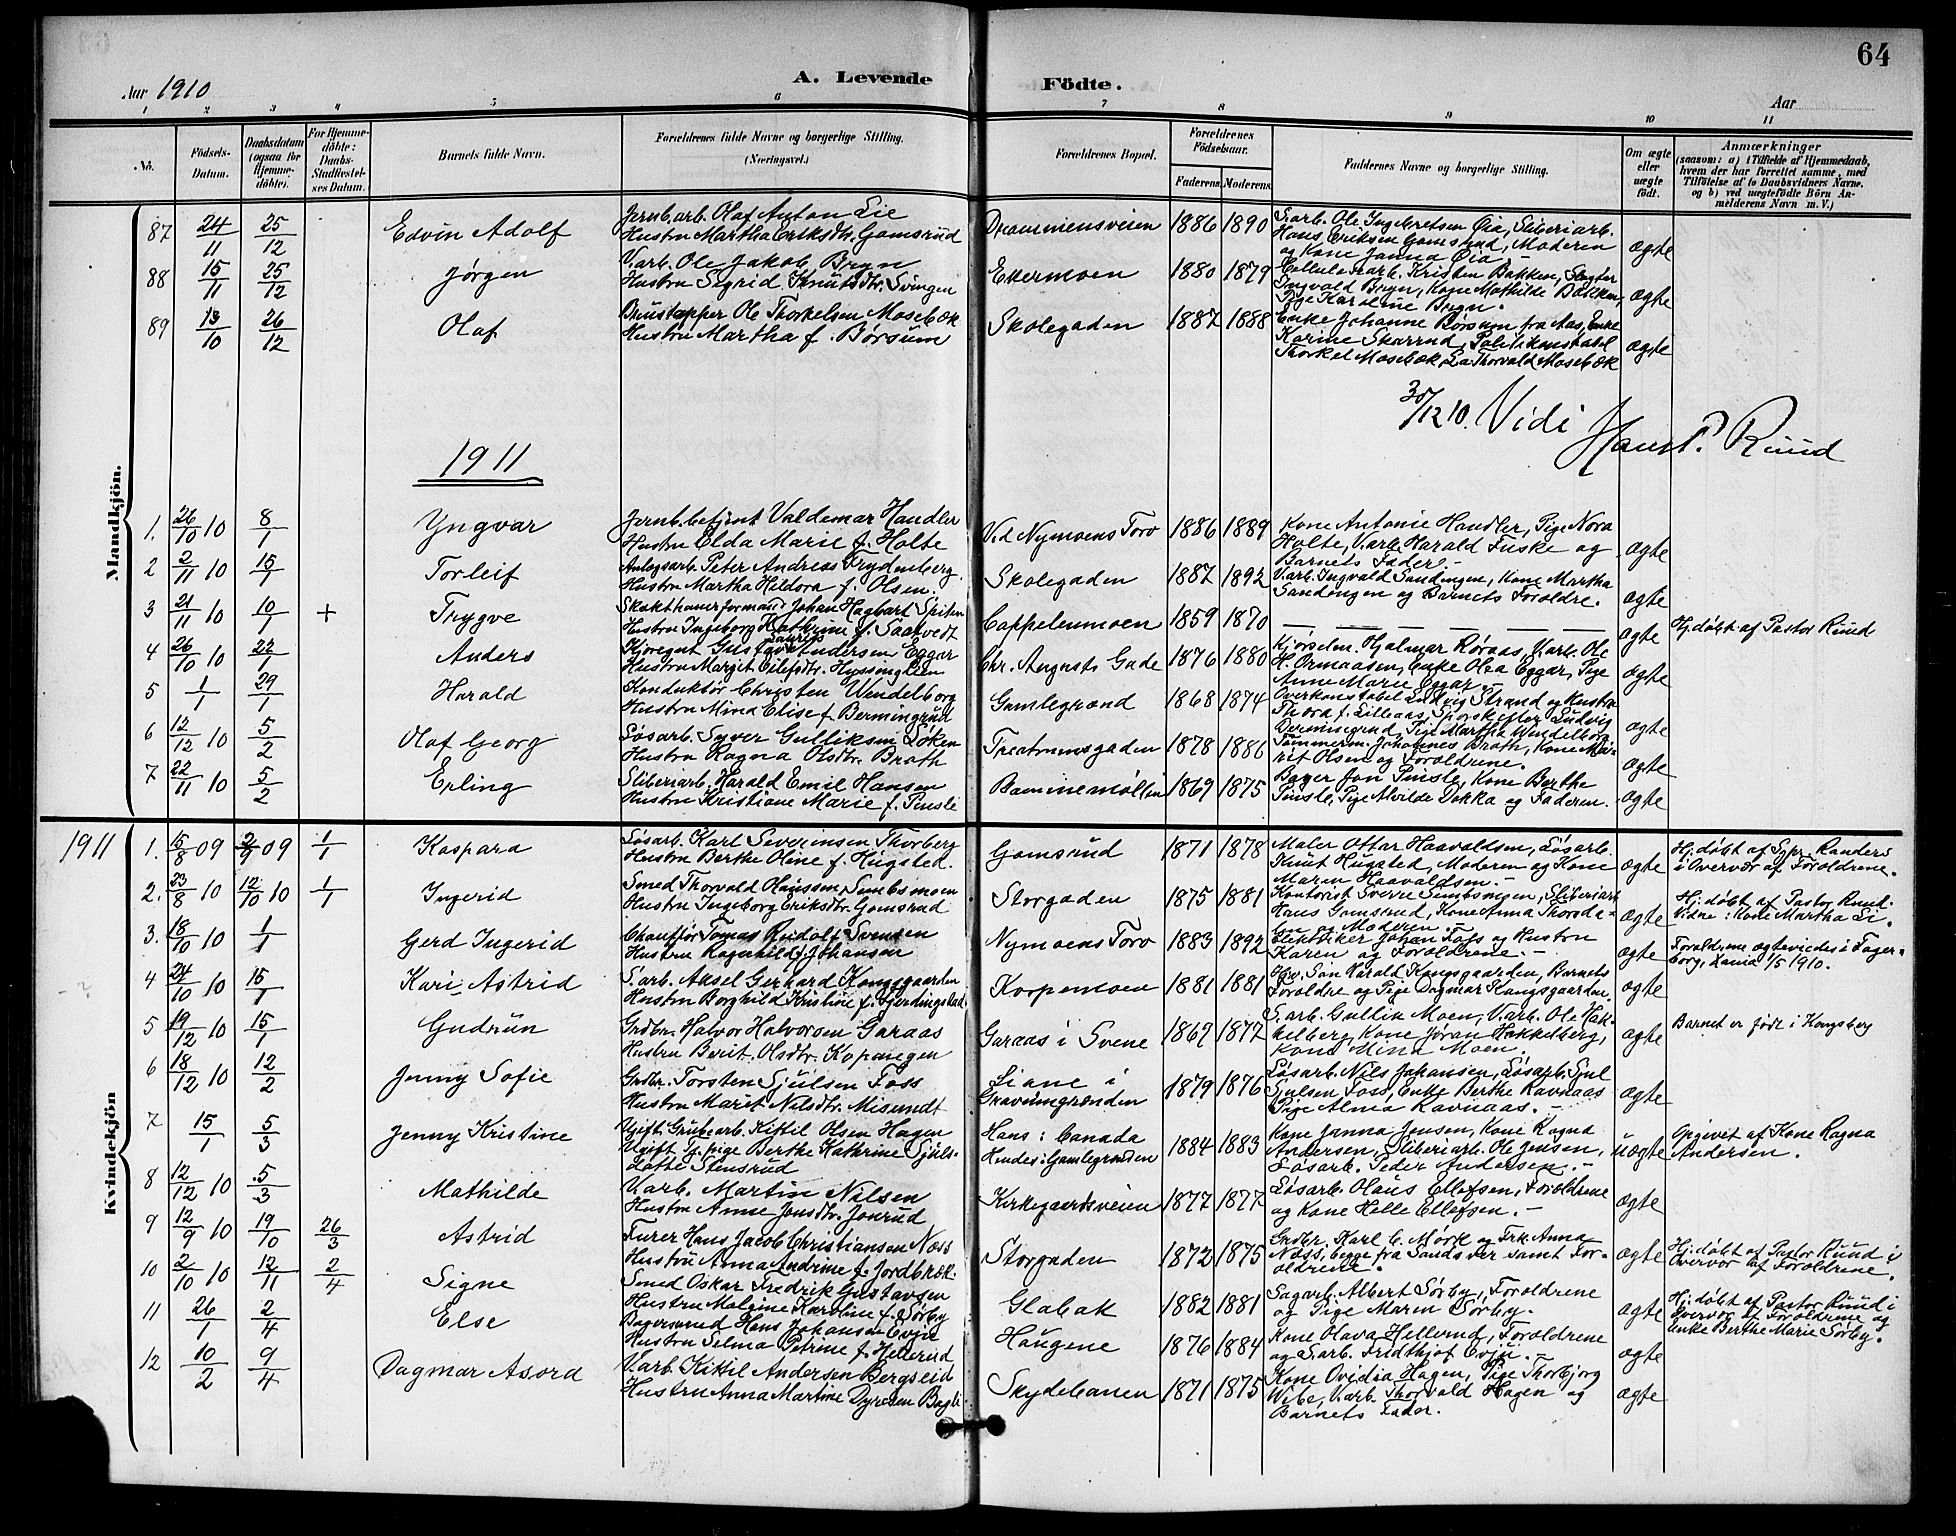 64
Aar 1910
A. Levende
Födte.
Aar
1 2 3 4 5 6 7 8 9 10 11
No.
Födsels-Datum.
Daabsdatum (ogsaa for Hjemmedöbte).
For Hjemmedöbte: Daabs-Stadfæstelses Datum.
Barnets fulde Navn.
Forældrenes fulde Navne og borgerlige Stilling. (Næringsvei.)
Forældrenes Bopæl.
Forældrenes Födselsaar.
Faderens. Moderens.
Faddernes Navne og borgerlige Stilling.
Om ægte eller uægte födt.
Anmærkninger
(saasom: a) i Tilfælde af Hjemmedaab, hvem der har forrettet samme, med Tilföielse af to Daabsvidners Navne, og b) ved uægtefödte Börn Anmelderens Navn m. V.)
Mandkjön.
87 24/11 25/12 Edvin Adolf
Jernb.arb. Olaf Anton Lie
Hustru Martha Eriksdtr. Gomsrud
Drammensveien 1886 1890
S.arb. Ole Ingebretsen Øia, Sliberiarb.
Hans Eriksen Gomsrud, Moderen
og Kone Janna Øia. -
ægte
88 15/11 25/12 Jørgen
V.arb. Ole Jakob Bryn
Hustru Sigrid Knutsdtr. Svingen
Ekermoen 1880 1879
Cellulosearb. Kristen Bakken, Slagter
Ingvald Bryn, Kone Mathilde Bakken,
Pige Karoline Bryn.
ægte
89 13/10 26/12 Olaf
Brustapper Ole Thorkelsen Mosebæk
Hustru Martha f. Børsum
Skolegaden 1887 1888
Enke Johanne Børsum fra Aas, Enke
Karine Skarrud, Politikonstabel
Thorkel Mosebæk, La Thorvald Mosebæk
ægte
30/12 10. Vidi
Hans P. Ruud
1911
1. 26/10 10 8/1 Yngvar
Jernb.betjent Valdemar Handler
Hustru Elda Marie f. Holte
V.d Nymoens Torv 1886 1889
Kone Antonie Handler, Pige Nora
Holte, V.arb. Harald Fuske og
Barnets Fader. -
ægte
2 2/11 10 15/1 Torleif
Anlogsarb. Peter Andreas Frydenberg.
Hustru Martha Heldora f. Olsen.
Skolegaden 1887 1892
V.arb. Ingvald Sandengen, Kone Martha
Sandengen og Barnets Forældre.
ægte
3 21/11 10 10/1 + Trygve
Johan Hagbart Spiten
Hustru Ingeborg Kathrine f. Saatvedt
Cappelenmoen 1859 1870
ægte
Hj. døbt af Pastor Ruud
4 26/10 10 22/1 Anders
Kjøregut Gustav Laurits Andersen Eggar
Hustru Margit Eilefsdtr. Hyssinglien
Chr. Augusts Gade 1876 1880
Kjørselm. Hjalmar Røraas, V.arb. Ole
H. Ormaasen, Enke Olea Eggar, Pige
Anne Marie Eggar. -
ægte
5 1/1 29/1 Harald
Konduktør Christen Wendelborg
Hustru Mina Elise f. Bermingrud
Gamlegrænd 1868 1874
Overkonstabel Ludvig Strand og Hustru
Thora f. Lilleaas, Sporskifter Ludvig
Bermingrud, Pige Martha Wendelborg
ægte
6 12/12 10 5/2 Olaf Georg
Løsarb. Syver Gulliksen Løken
Hustru Ragna Olsdtr. Bråth
Treatrumsgaden 1878 1886
Tømmerm. Johannes Bråth, Kone Ma-
rit Olsen og Forældrene. -
ægte
7 22/11 10 5/2 Erling
Sliberiarb. Harald Emil Hansen
Hustru Kristiane Marie f. Pinsli
Bamsemøllen 1869 1875
Bager Jon Pinsle, Kone Berthe
Pinsle, Pige Alvilde Dokka og Faderen.
ægte
1911
Kvindekjön
1. 15/8 09 2/9 09 1/1 Kaspara
Løsarb. Karl Severinsen Thorberg
Hustru Berthe Oline f. Hugsted.
Gomsrud 1871 1878
Maler Ottar Haavaldsen, Løsarb.
Knut Hugsted, Moderen og Kone
Maren Haavaldsen. -
ægte
Hj. døbt af Sgpr. Randers
i Overvær af Forældrene.
2. 23/8 10 12/10 10 1/1 Ingerid
Smed Thorvald Hanssen Sembsmoen
Hustru Ingeborg Eriksdtr. Gomsrud
Storgaden 1875 1881
Kontorist Sverre Sembsmoen, Sliberiarb.
Hans Gomsrud, Kone Anna Thorsda-
len og Moderen. -
ægte
Hj. døbt af Pastor Ruud.
Vidne: Kone Martha Li.
3. 18/10 10 1/1 Gerd Ingerid
Chauffør Tomas Rudolf Svensen
Hustru Ragnhild f. Johansen
Nymoens Torv 1883 1892
Elektriker Johan Foss og Hustru
Karen og Forældrene. -
ægte
Forældrene ægteviedes i Fager-
borg, Xania 1/5 1910.
- ?
4 24/10 10 15/1 Kari Astrid
S.arb. Aksel Gerhard Kongsgaarden
Hustru Borghild Kristine f. Gjerdingstad
Korpemoen 1881 1881
Hv. Søn Harald Kongsgaarden, Barnets
Forældre og Pige Dagmar Kongsgaarden.
ægte
5 19/12 10 15/1 Gudrun
Grdbr. Halvor Halvorsen Garaas
Hustru Berit Olsdtr. Kopangen
Garaas i Svene 1867 1872
S.arb. Gullik Moen, V.arb. Ole Hak-
kelberg, Kone Jøran Hakkelberg,
Kone Mina Moen.
ægte
Barnet er født i Kongsberg
6 18/12 10 12/2 Jenny Sofie
Grdbr. Torsten Sjulsen Foss
Hustru Marit Nilsdtr. Misundt
Liane i
Gravumgrænden 1879 1876
Løsarb. Nils Johansen, Løsarb. Sjul
Sjulsen Foss, Enke Berthe Ravnaas
Pige Alma Ravnaas. -
ægte
7 15/1 5/3 Jenny Kristine
Ugift Grubearb. Kittil Olsen Hagen
Ugift Tj.pige Berthe Kathrine Sjuls-
datter Stensrud
Hans: Canada
Hendes: Gamlegrænden 1884 1883
Kone Janna Jensen, Kone Ragna
Andersen, Sliberiarb. Ole Jensen,
Løsarb. Peder Andersen. -
uægte
Opgivet af Kone Ragna
Andersen.
8 12/12 10 5/3 Mathilde
V.arb. Martin Nilsen
Hustru Anne Jonsdtr. Jonrud
Kirkegaardsveien 1877 1877
Løsarb. Olaus Ellefsen, Forældrene
og Kone Helle Ellefsen. -
ægte
9 12/9 10 19/10 26/3 Astrid
Furer Hans Jacob Christiansen Næss
Hustru Anna Andrine f. Jordbræk.
Storgaden 1872 1875
Grdbr. Karl C. Mørk og Frk Anna
Næss, begge fra Sandsvær samt For-
ældrene.
ægte
Hj. døbt af Pastor Ruud i
Overvær af Forældrene.
10 2/10 10 12/11 2/4 Signe
Smed Oskar Fredrik Gustavsen
Hustru Malvine Karoline f. Sørby
Glabak 1882 1881
Sagarb. Albert Sørby, Forældrene
og Pige Maren Sørby.
ægte
Hj. døbt af Pastor Ruud i
Overvær af Forældrene og
Enke Berthe Marie Sørby.
11 26/1 2/4 Else
Bagersvend Hans Johansen Evju
Hustru Selma Petrine f. Hellerud
Haugene 1876 1884
Kone Olava Hellerud, Forældrene
og S.arb. Fridthjof Evju. -
ægte
12 10/2 9/4 Dagmar Asora
V.arb. Kittil Andersen Bergseid
Hustru Anna Martine Dyresen Bogli
Skydebanen 1871 1875
Kone Ovidia Hagen, Pige Thorbjørg
Wibe, V.arb. Thorvald Hagen og
Barnets Fader.
ægte